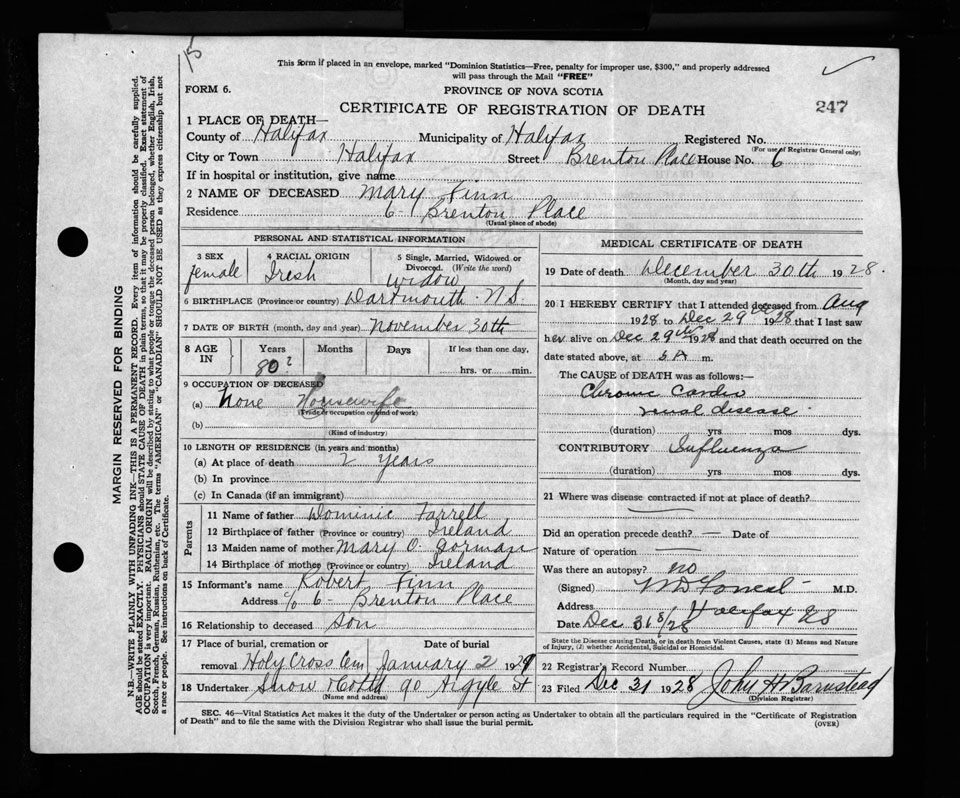 15
This form if placed in an envelope, marked "Dominion Statistics—Free, penalty for improper use, $300," and properly addressed
will pass through the Mail "FREE"
FORM 6.
PROVINCE OF NOVA SCOTIA
CERTIFICATE OF REGISTRATION OF DEATH
247
1 PLACE OF DEATH—
County of Halifax Municipality of Halifax Registered No.
(For use of Registrar General only)
City or Town Halifax Street Brenton Place House No. 6
If in hospital or institution, give name
2 NAME OF DECEASED Mary Finn
Residence 6 - Brenton Place
(Usual place of abode)
PERSONAL AND STATISTICAL INFORMATION
3 SEX
female
4 RACIAL ORIGIN
Iresh
5 Single, Married, Widowed or
Divorced. (Write the word)
Widow
6 BIRTHPLACE (Province or country) Dartmouth N.S.
7 DATE OF BIRTH (month, day and year) November 30th
8 AGE IN
Years Months Days If less than one day,
80? hrs. or min.
9 OCCUPATION OF DECEASED
(a) None Housewife
(Trade or occupation or kind of work)
(b)
(Kind of industry)
10 LENGTH OF RESIDENCE (in years and months)
(a) At place of death 2 Years
(b) In province
(c) In Canada (if an immigrant)
Parents
11 Name of father Dominic Farrell
12 Birthplace of father (Province or country) Ireland
13 Maiden name of mother Mary O. Gorman
14 Birthplace of mother (Province or country) Ireland
15 Informant's name Robert Finn
Address c/o 6 - Brenton Place
16 Relationship to deceased Son
17 Place of burial, cremation or Date of burial
removal Holy Cross Cem January 2 1929
18 Undertaker Snow & Co Ltd 90 Argyle St
(Name and address)
MEDICAL CERTIFICATE OF DEATH
19 Date of death December 30th 1928.
(Month, day and year)
20 I HEREBY CERTIFY that I attended deceased from Aug
1928 to Dec 29th 1928 that I last saw
her alive on Dec 29th 1928 and that death occurred on the
date stated above, at 5 A m.
The CAUSE of DEATH was as follows:—
Chronic Cardio
renal disease
(duration) yrs mos dys.
CONTRIBUTORY Influenza
(duration) yrs mos dys.
21 Where was disease contracted if not at place of death?
Did an operation precede death? — Date of
Nature of operation —
Was there an autopsy? no
(Signed) M.D.
Address Halifax NS
Date Dec 31st/28
State the Disease causing Death, or in death from Violent Causes, state (1) Means and Nature
of Injury, (2) whether Accidental, Suicidal or Homicidal.
22 Registrar's Record Number
23 Filed Dec 31 1928 John H Barnstead
(Division Registrar)
SEC. 46—Vital Statistics Act makes it the duty of the Undertaker or person acting as Undertaker to obtain all the particulars required in the "Certificate of Registration
of Death" and to file the same with the Division Registrar who shall issue the burial permit.
(OVER)
MARGIN RESERVED FOR BINDING
N.B.—WRITE PLAINLY, WITH UNFADING INK—THIS IS A PERMANENT RECORD. Every item of information should be carefully supplied.
AGE should be stated EXACTLY. PHYSICIANS should STATE CAUSE OF DEATH in plain terms, so that it may be properly classified. Exact statement of
OCCUPATION is very important. RACIAL ORIGIN will be described by stating to what people or tongue the deceased person belonged, whether English, Irish,
Scotch, French, German, Russian, Ruthenian, etc. The terms "AMERICAN" or "CANADIAN" SHOULD NOT BE USED as they express citizenship but not
a race or people. See instructions on back of Certificate.